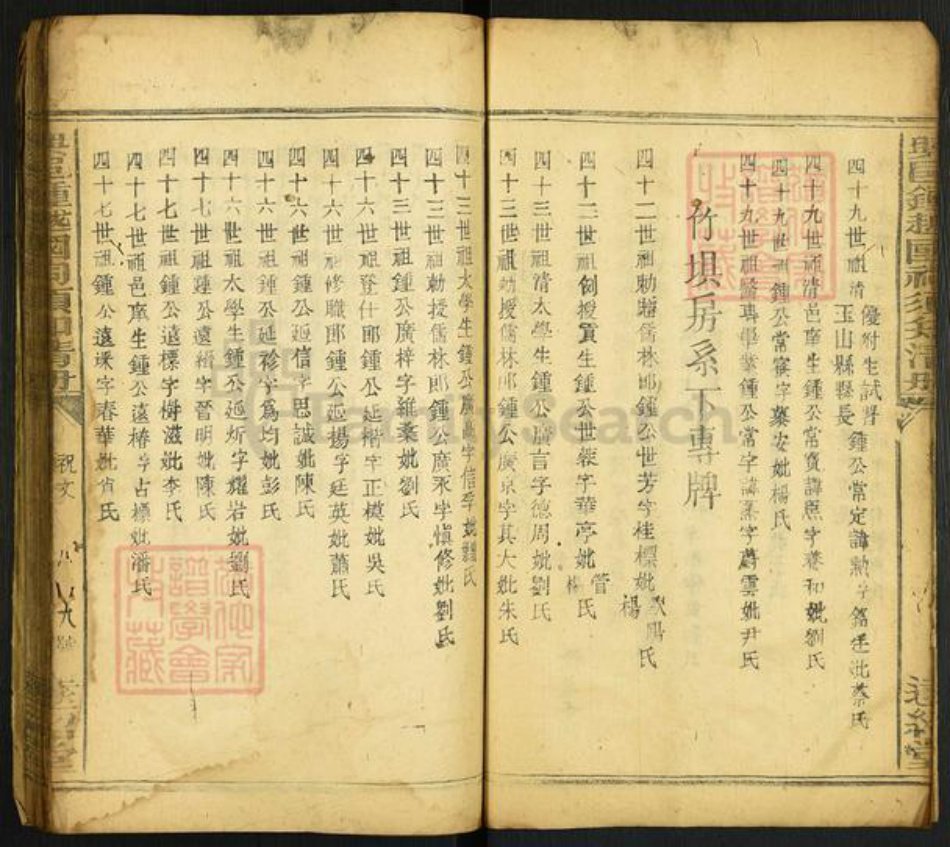 四十九世祖清優附生試署玉山縣縣長鍾公常定諱勲字銘 妣蔡氏
四十九世祖清邑庠生鍾公常寶諱熙字養和妣劉氏
四十九世祖鍾公常賓字黎安妣楊氏
四十九世祖 專畢業鍾公常字諱 字蔚雲妣尹氏
竹垻房系下專牌
四十二世祖勅贈儒林郎鍾公世芳字桂標妣歐陽楊氏
四十二世祖例授貢生鍾公世蓉字華亭妣管楊氏
四十三世祖清太學生鍾公廣言字德周妣劉氏
四十三世祖勅授儒林郎鍾公廣京字其大妣朱氏
四十三世祖太學生鍾公廣 字信孚妣劉氏
四十三世祖勅授儒林郎鍾公廣永字慎修妣劉氏
四十三世祖鍾公廣梓字維桑妣劉氏
四十六世祖登仕郎鍾公延楷字正模妣吳氏
四十六世祖修職郎鍾公延揚字廷英妣蕭氏
四十六世祖鍾公延信字思誠妣陳氏
四十六世祖鍾公延袗字為均妣彭氏
四十六世祖太學生鍾公延炘字耀岩妣劉氏
四十七世祖鍾公遠縉字晉明妣陳氏
四十七世祖鍾公遠標字樹滋妣李氏
四十七世祖邑庠生鍾公遠椿字占標妣潘氏
四十七世祖鍾公遠 字春華妣肖氏
祝文
FamilySearch